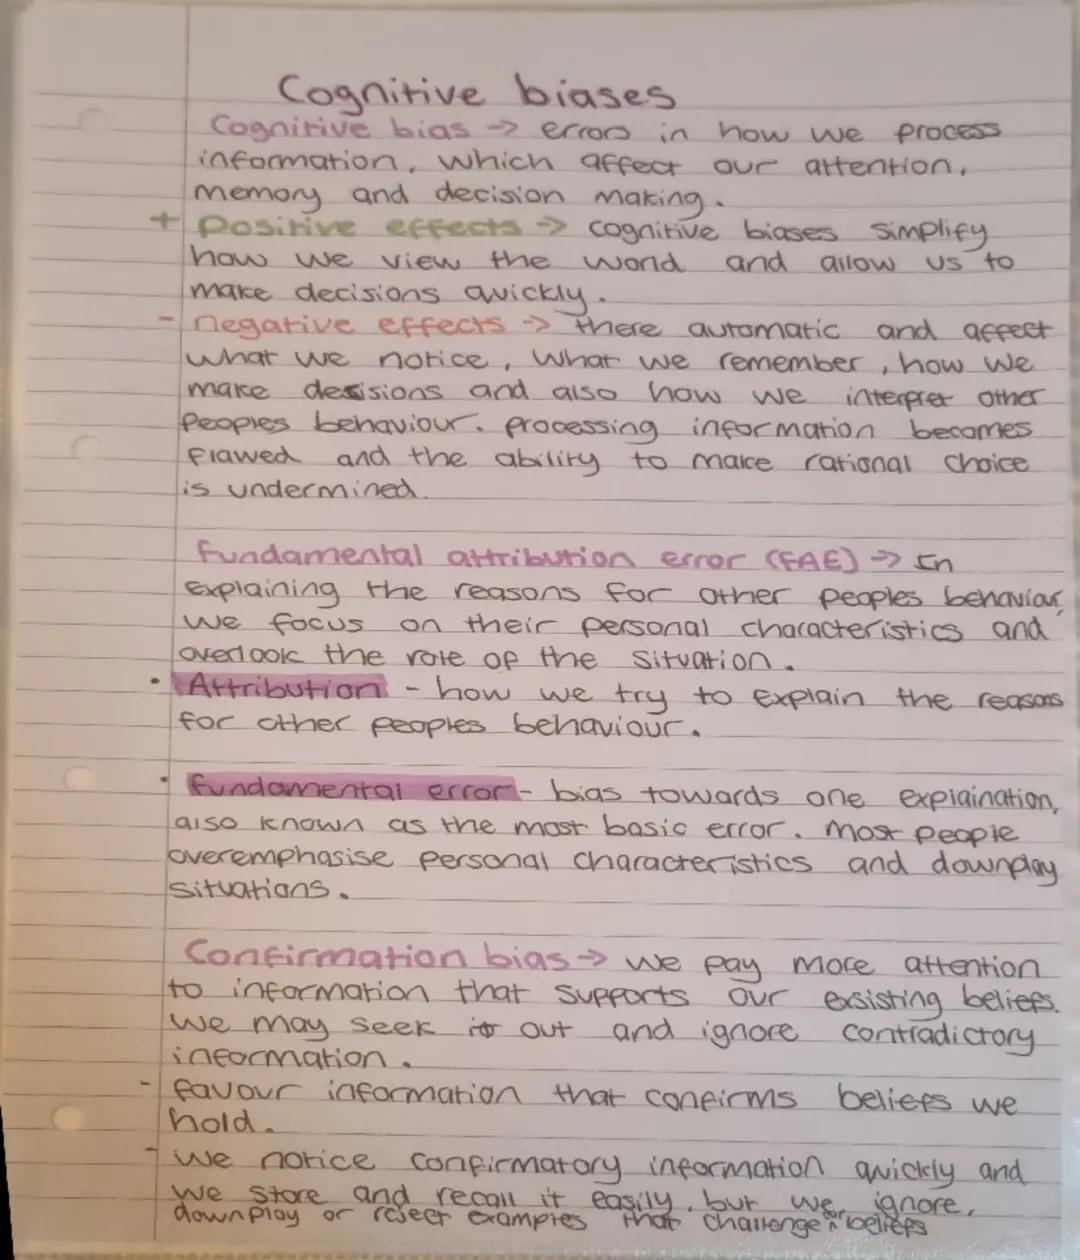 Cognitive biases
Cognitive bias → errors in how we process
information, which affect our attention,
memory and decision making.
+ Positive effects → cognitive biases simplify
how we view the world and allow us to
make decisions quickly.
- negative effects → there automatic and affect
what we notice, what we remember, how we
make desisions and also how we interpret other
peoples behaviour. processing information becomes
flawed and the ability to make rational choice
is undermined.
fundamental attribution error (FAE) → In
explaining the reasons for other peoples behaviour,
we focus on their personal characteristics and
overlook the role of the situation.
• Attribution - how we try to explain the reasons
for other peoples behaviour.
• fundamental error - bias towards one explaination,
also known as the most basic error. most people
overemphasise personal characteristics and downplay
situations.
Confirmation bias → we pay more attention
to information that supports our exsisting beliefs.
we may seek it out and ignore contradictory
information.
- favour information that confirms beliefs we
hold.
- we notice confirmatory information quickly and
we store and recall it easily, but we ignore,
downplay or reject examples that challenge beliefs